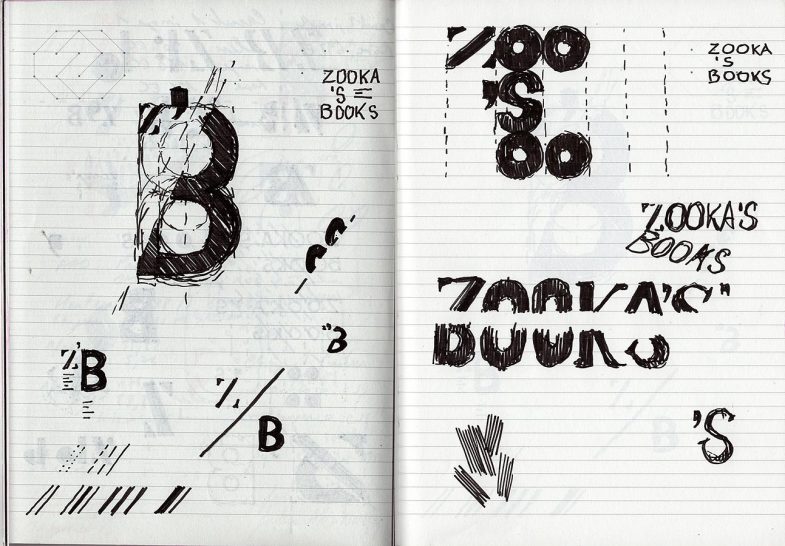 ZOOKA
'S
BOOKS
Z'B
'B
Z'B
"B
Z/B
ZOO
'S
OO
ZOOKA
'S
BOOKS
ZOOKA'S
BOOKS
ZOOKA'S"
BOOKS
'S